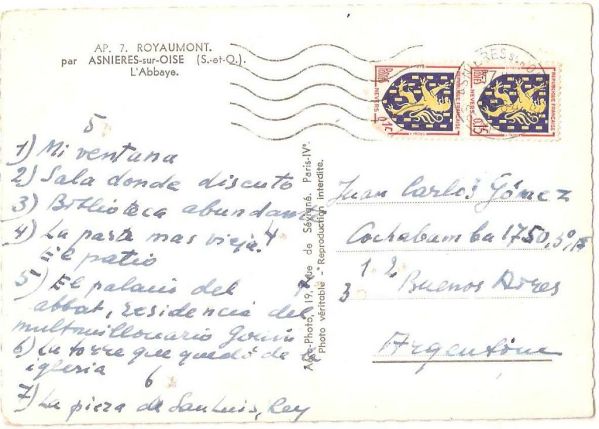 AP. 7. ROYAUMONT.
par ASNIERES-sur-OISE (S.-et-O.).
L'Abbaye.
5
1) Mi ventana
2) Sala donde discuto
3) Biblioteca abundan
4) La parte mas vieja. 4
El patio
5) El palacio del
abbat, residencia del
multimillonario
6) La torre que quedó de la
iglesia
6
7) La pieza de San Luis, Rey
Paris-IVe
Reproduction interdite.
Photo véritable
rue de Sévigné.
Juan Carlos Gómez
Cochabamba 1750,
1 2
3 Buenos Aires
Argentine
REPUBLIQUE FRANÇAISE
NEVERS
0,15
REPUBLIQUE FRANÇAISE
NEVERS
0,15